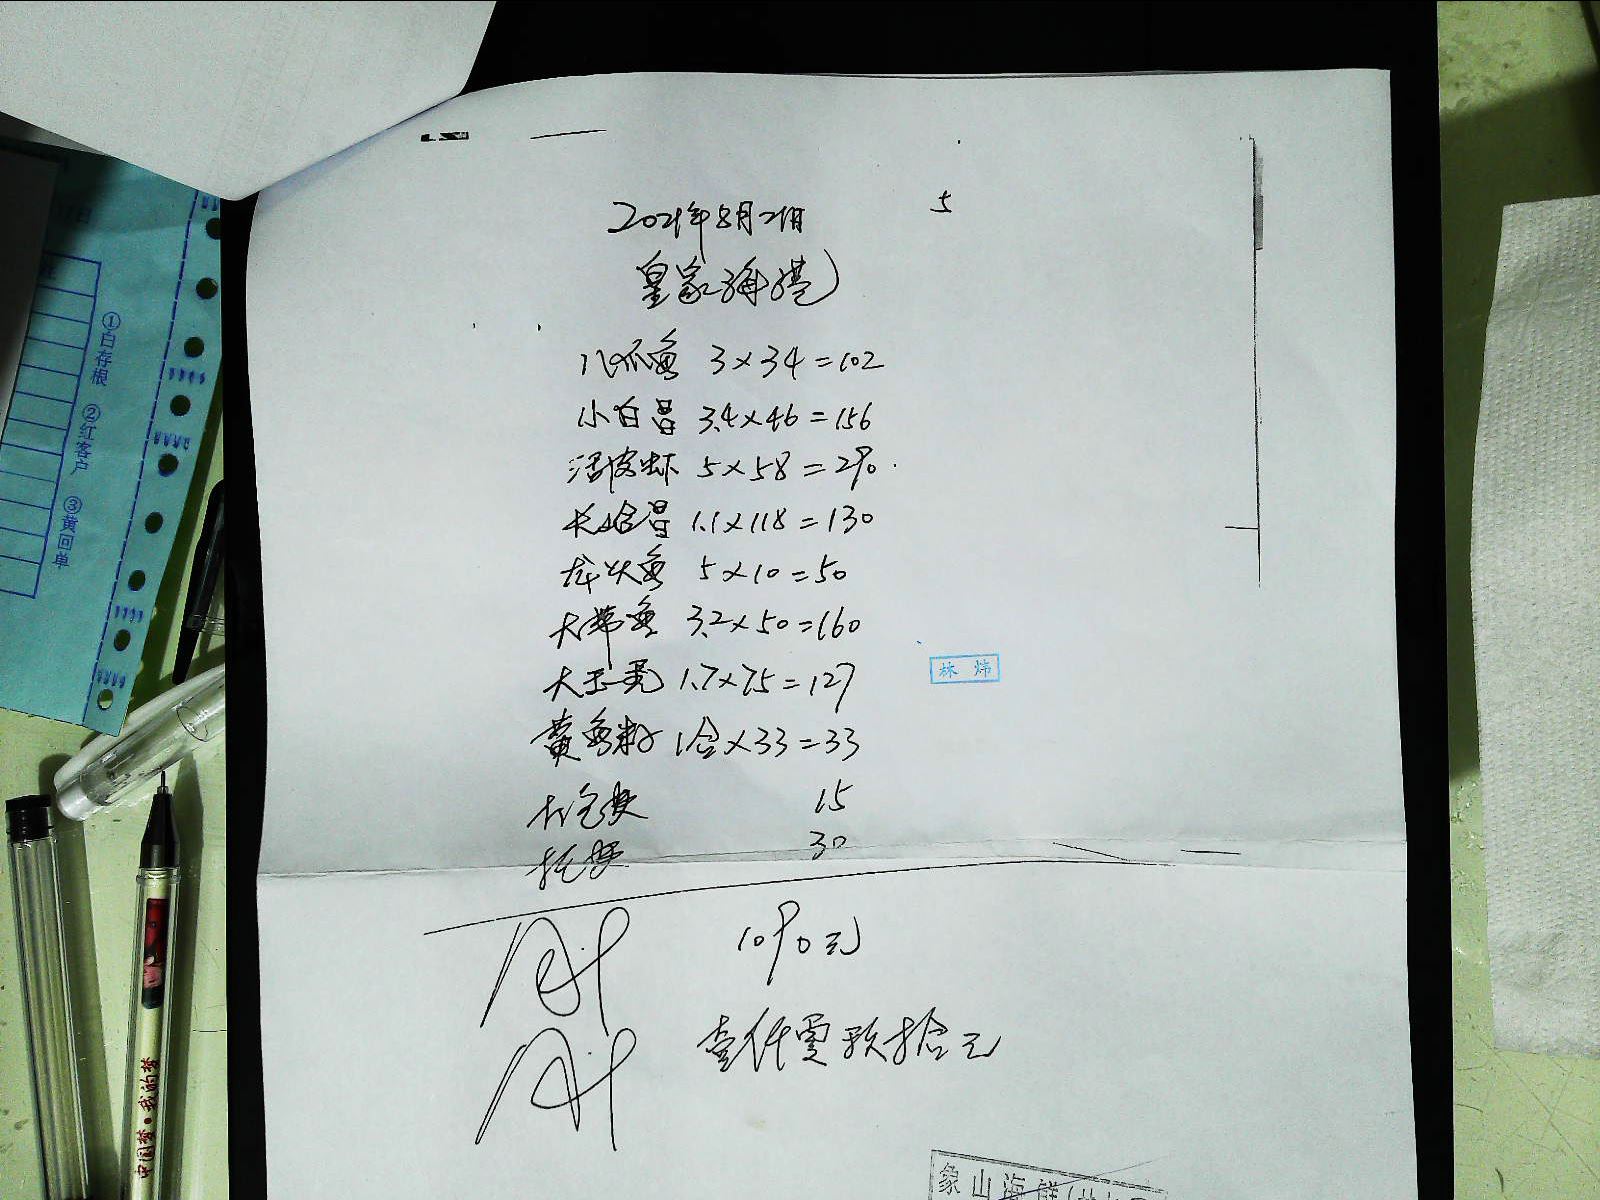 5
2021年8月21日
皇家海港
八爪鱼 3×34=102
小白昌 3.4×46=156
活皮虾 5×58=290.
长哈昌 1.1×118=130
龙头鱼 5×10=50
大带鱼 3.2×50=160
大玉秃 1.7×75=127
黄鱼籽 1合×33=33
打包费 15
托费 30
1090元
壹仟零玖拾元
林炜
象山海鲜
①白存根 ②红客户 ③黄回单
中国梦·我的梦